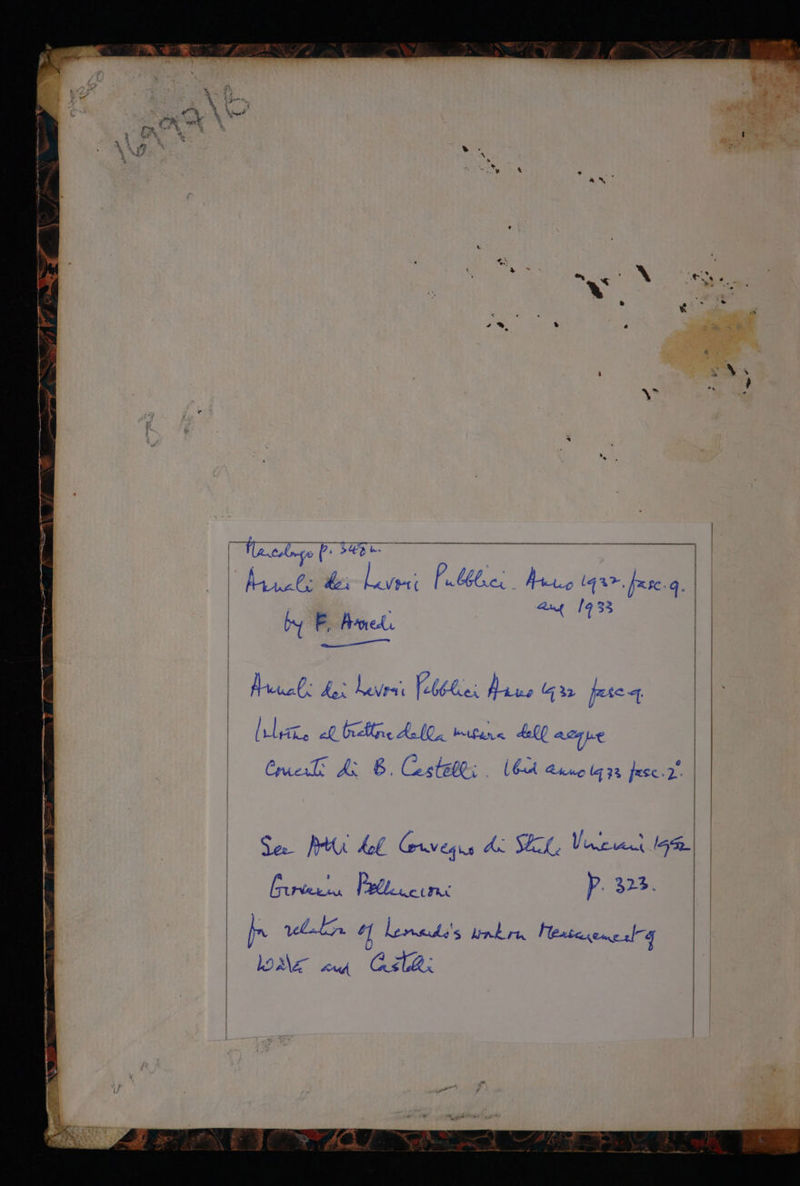 £250
16997/B
p. 348 n.
Annali dei Lavori Pubblici. Anno 1932. fasc. 9.
and 1933
by F. Arredi
Annali dei Lavori Pubblici Anno 1932 fasc 9
al trattore della misura dell acque
di B. Castelli. Ibid anno 1933 fasc. 2º.
See Atti del Convegno di Studi Vinciani 1952
p. 323.
for relation of Leonardo's work on Measurement of
and Castelli